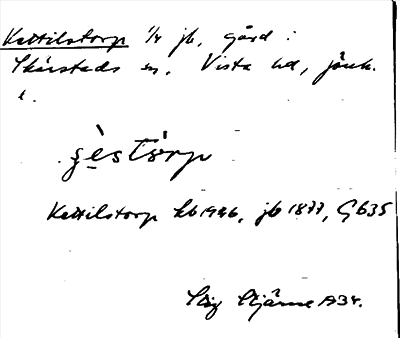 Kettilstorp 1/4 jb, gård i
Skärstads sn. Vista hd, Jönk.
l.
Kettilstorp hb 1946, jb 1877, Gb35
Stig Stjärne 1934.